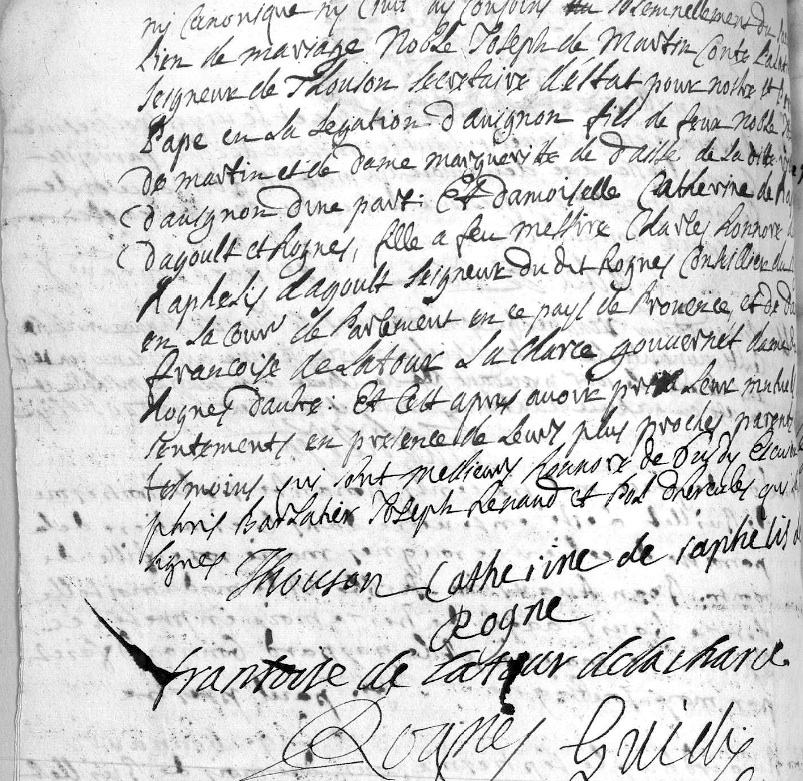 ny Canonique ny Civil ay conjoins solemnellement du
Lien de mariage Noble Joseph de Martin Conte
seigneur de Thouson secretaire d'estat pour nostre st
Pape en La Legation d'avignon fils de feux noble
de martin et de dame margueritte de de La ditte
d'avignon d'une part: Et damoiselle Catherine de
Dagoult et Rognes, fille a feu messire Charles honnore
Raphelis d'agoult seigneur du dit Rognes Conseillier du
en La Cour de Parlement en ce pays de Provence, et de
francoise de La tour La Charce gouvernet dame
Rognes d'autre: Et Cest apres avoir Leur mutuel
sentements en presence de Leurs plus proches parents
tesmoins qui sont messieurs honnore de
Barlatier Joseph Renaud et qui
signes
Thouson Catherine de raphelis
Rogne
francoise de Latour delacharce
Rognes